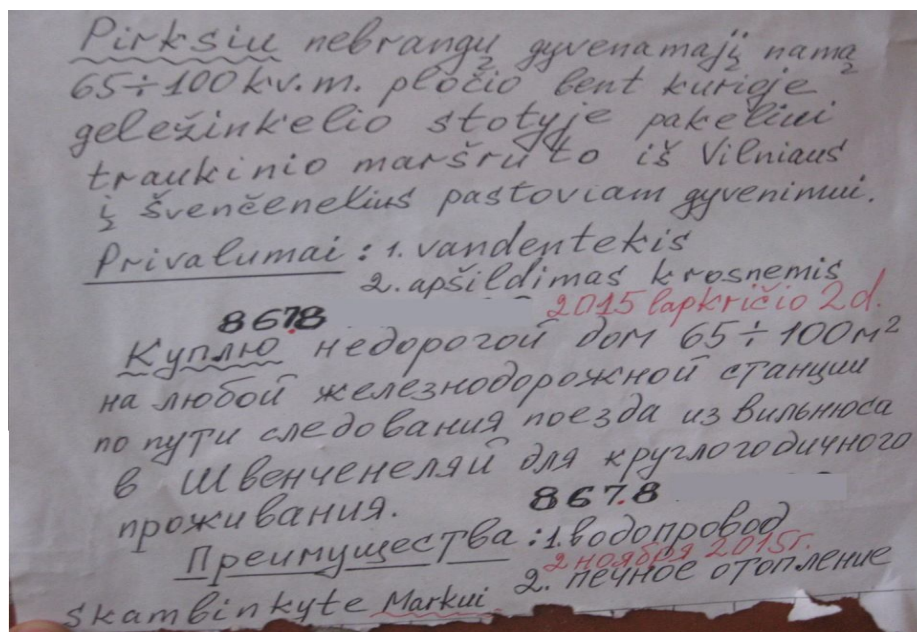 Pirksiu nebrangų gyvenamajį namą
65÷100 kv.m. pločio bent kurioje
geležinkelio stotyje pakeliui
traukinio maršruto iš Vilniaus
į švenčenelius pastoviam gyvenimui.
Privalumai: 1. vandentekis
2. apšildimas krosnemis
8678 2015 lapkričio 2d.
Куплю недорогой дом 65÷100м²
на любой железнодорожной станции
по пути следования поезда из Вильнюса
в Швенченеляй для круглогодичного
проживания. 8678
Преимущества: 1. водопровод
2 ноября 2015г.
2. печное отопление
skambinkyte Markui